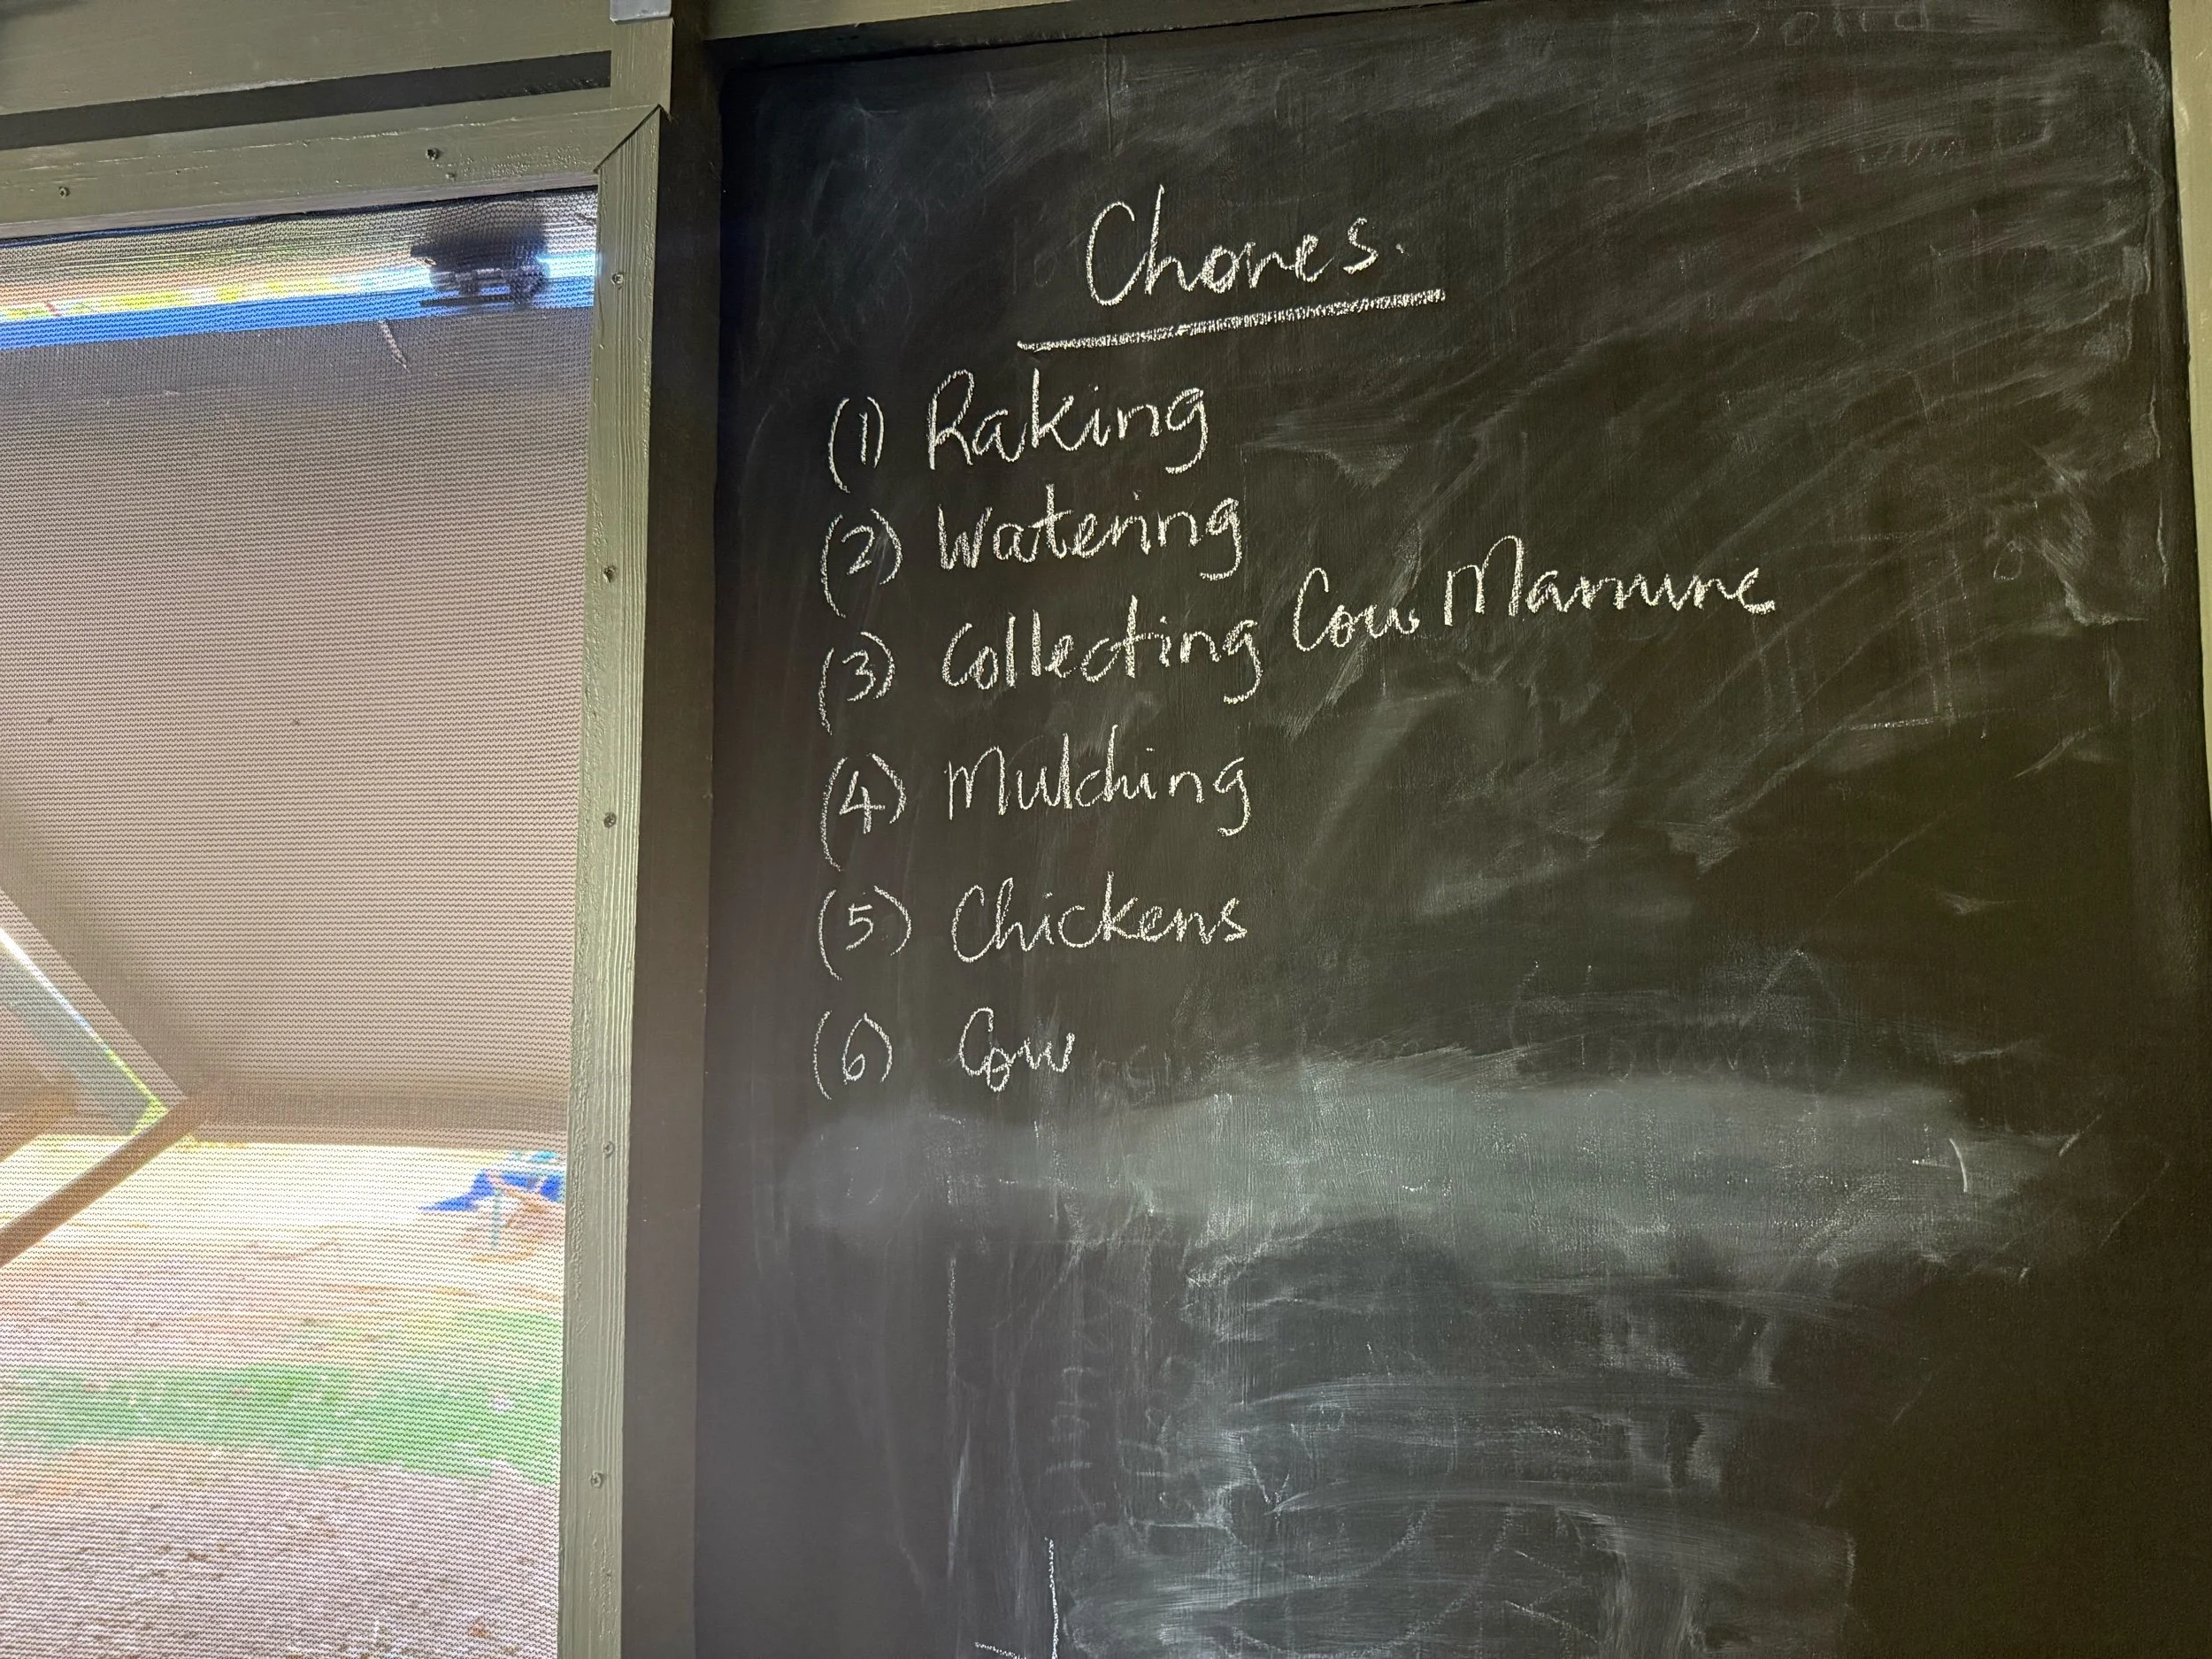 Chores.
(1) Raking
(2) Watering
(3) Collecting Cow Manure
(4) Mulching
(5) Chickens
(6) Cow